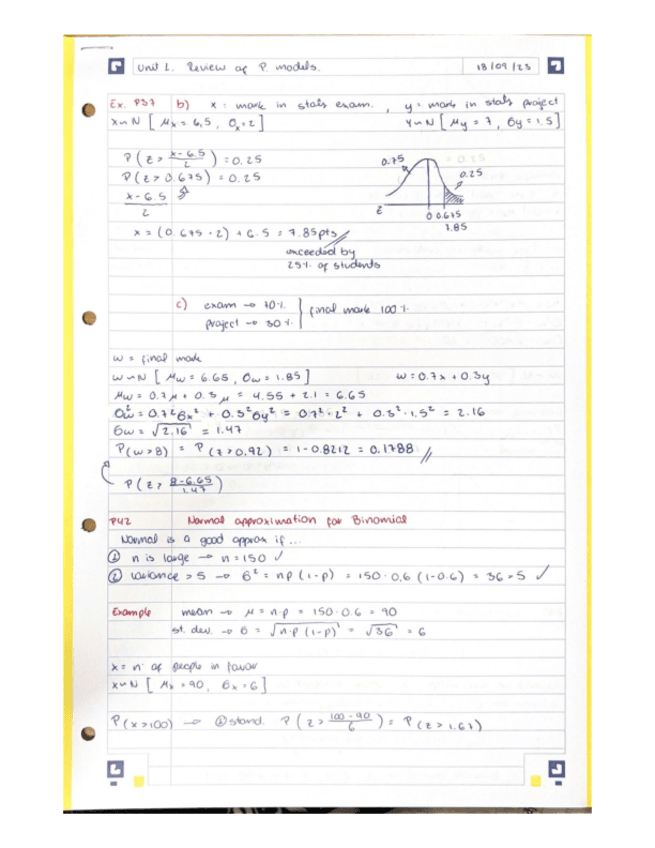 Unit 1. Review of P. models. 18/09/23
Ex. P37 b) x = mark in stats exam. , y = mark in stats project
x∼N [ μx = 6,5 , σx = 2 ] y∼N [ μy = 7 , σy = 1,5 ]
P ( z > x-6.5 / 2 ) = 0.25
P ( z > 0.675 ) = 0.25
x-6.5 / 2
0.75 0.25
0 0.675
7.85
x = (0.675 · 2) + 6.5 = 7.85pts
exceeded by
25% of students
c) exam → 70%
project → 30% } final mark 100%
w = final mark
w∼N [ μw = 6.65 , σw = 1.85 ] w = 0.7x + 0.3y
μw = 0.7μ + 0.3μ = 4.55 + 2.1 = 6.65
σw² = 0.7²σx² + 0.3²σy² = 0.7² · 2² + 0.3² · 1.5² = 2.16
σw = √2.16 = 1.47
P(w>8) = P(z>0.92) = 1-0.8212 = 0.1788
P ( z > 8-6.65 / 1.47 )
P42 Normal approximation for Binomial
Normal is a good approx if ...
① n is large → n = 150 ✓
② variance > 5 → σ² = np (1-p) = 150 · 0.6 (1-0.6) = 36 > 5 ✓
Example mean → μ = n·p = 150 · 0.6 = 90
st. dev. → σ = √n·p (1-p) = √36 = 6
x = nº of people in favor
x∼N [ μx = 90, σx = 6 ]
P(x>100) → stand. P ( z > 100-90 / 6 ) = P(z > 1.67)